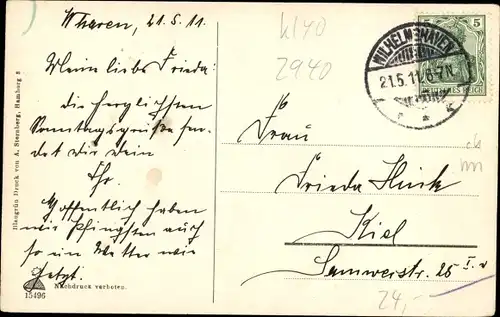 W'haven, 21.5.11.
Mein liebe Frieda!
die herzlichsten
Sonntagsgrüße sen-
det wir dein
Hoffentlich haben
wir Pfingsten auch
so ein Wetter wie
jetzt.
Blaugrün Druck von A. Sternberg, Hamburg 8
15496
Nachdruck verboten.
4140
2940
WILHELMSHAVEN
21.5.11.6-7N
5 5
DEUTSCHES REICH
Frau
Frieda
Kiel
25 I.
24,-